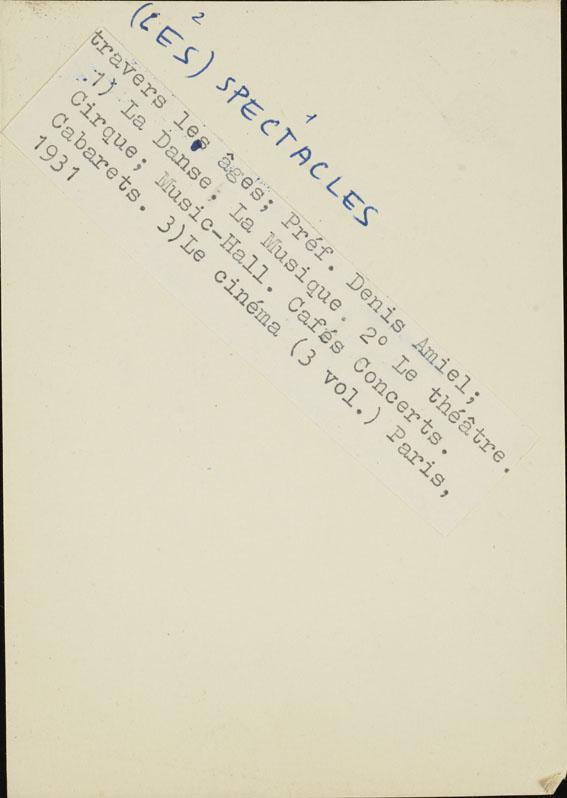 2 1
(LES) SPECTACLES
travers les âges; Préf. Denis Amiel;
1) La Danse; La Musique. 2° Le théâtre.
Cirque; Music-Hall. Cafés Concerts.
Cabarets. 3)Le cinéma (3 vol.) Paris,
1931